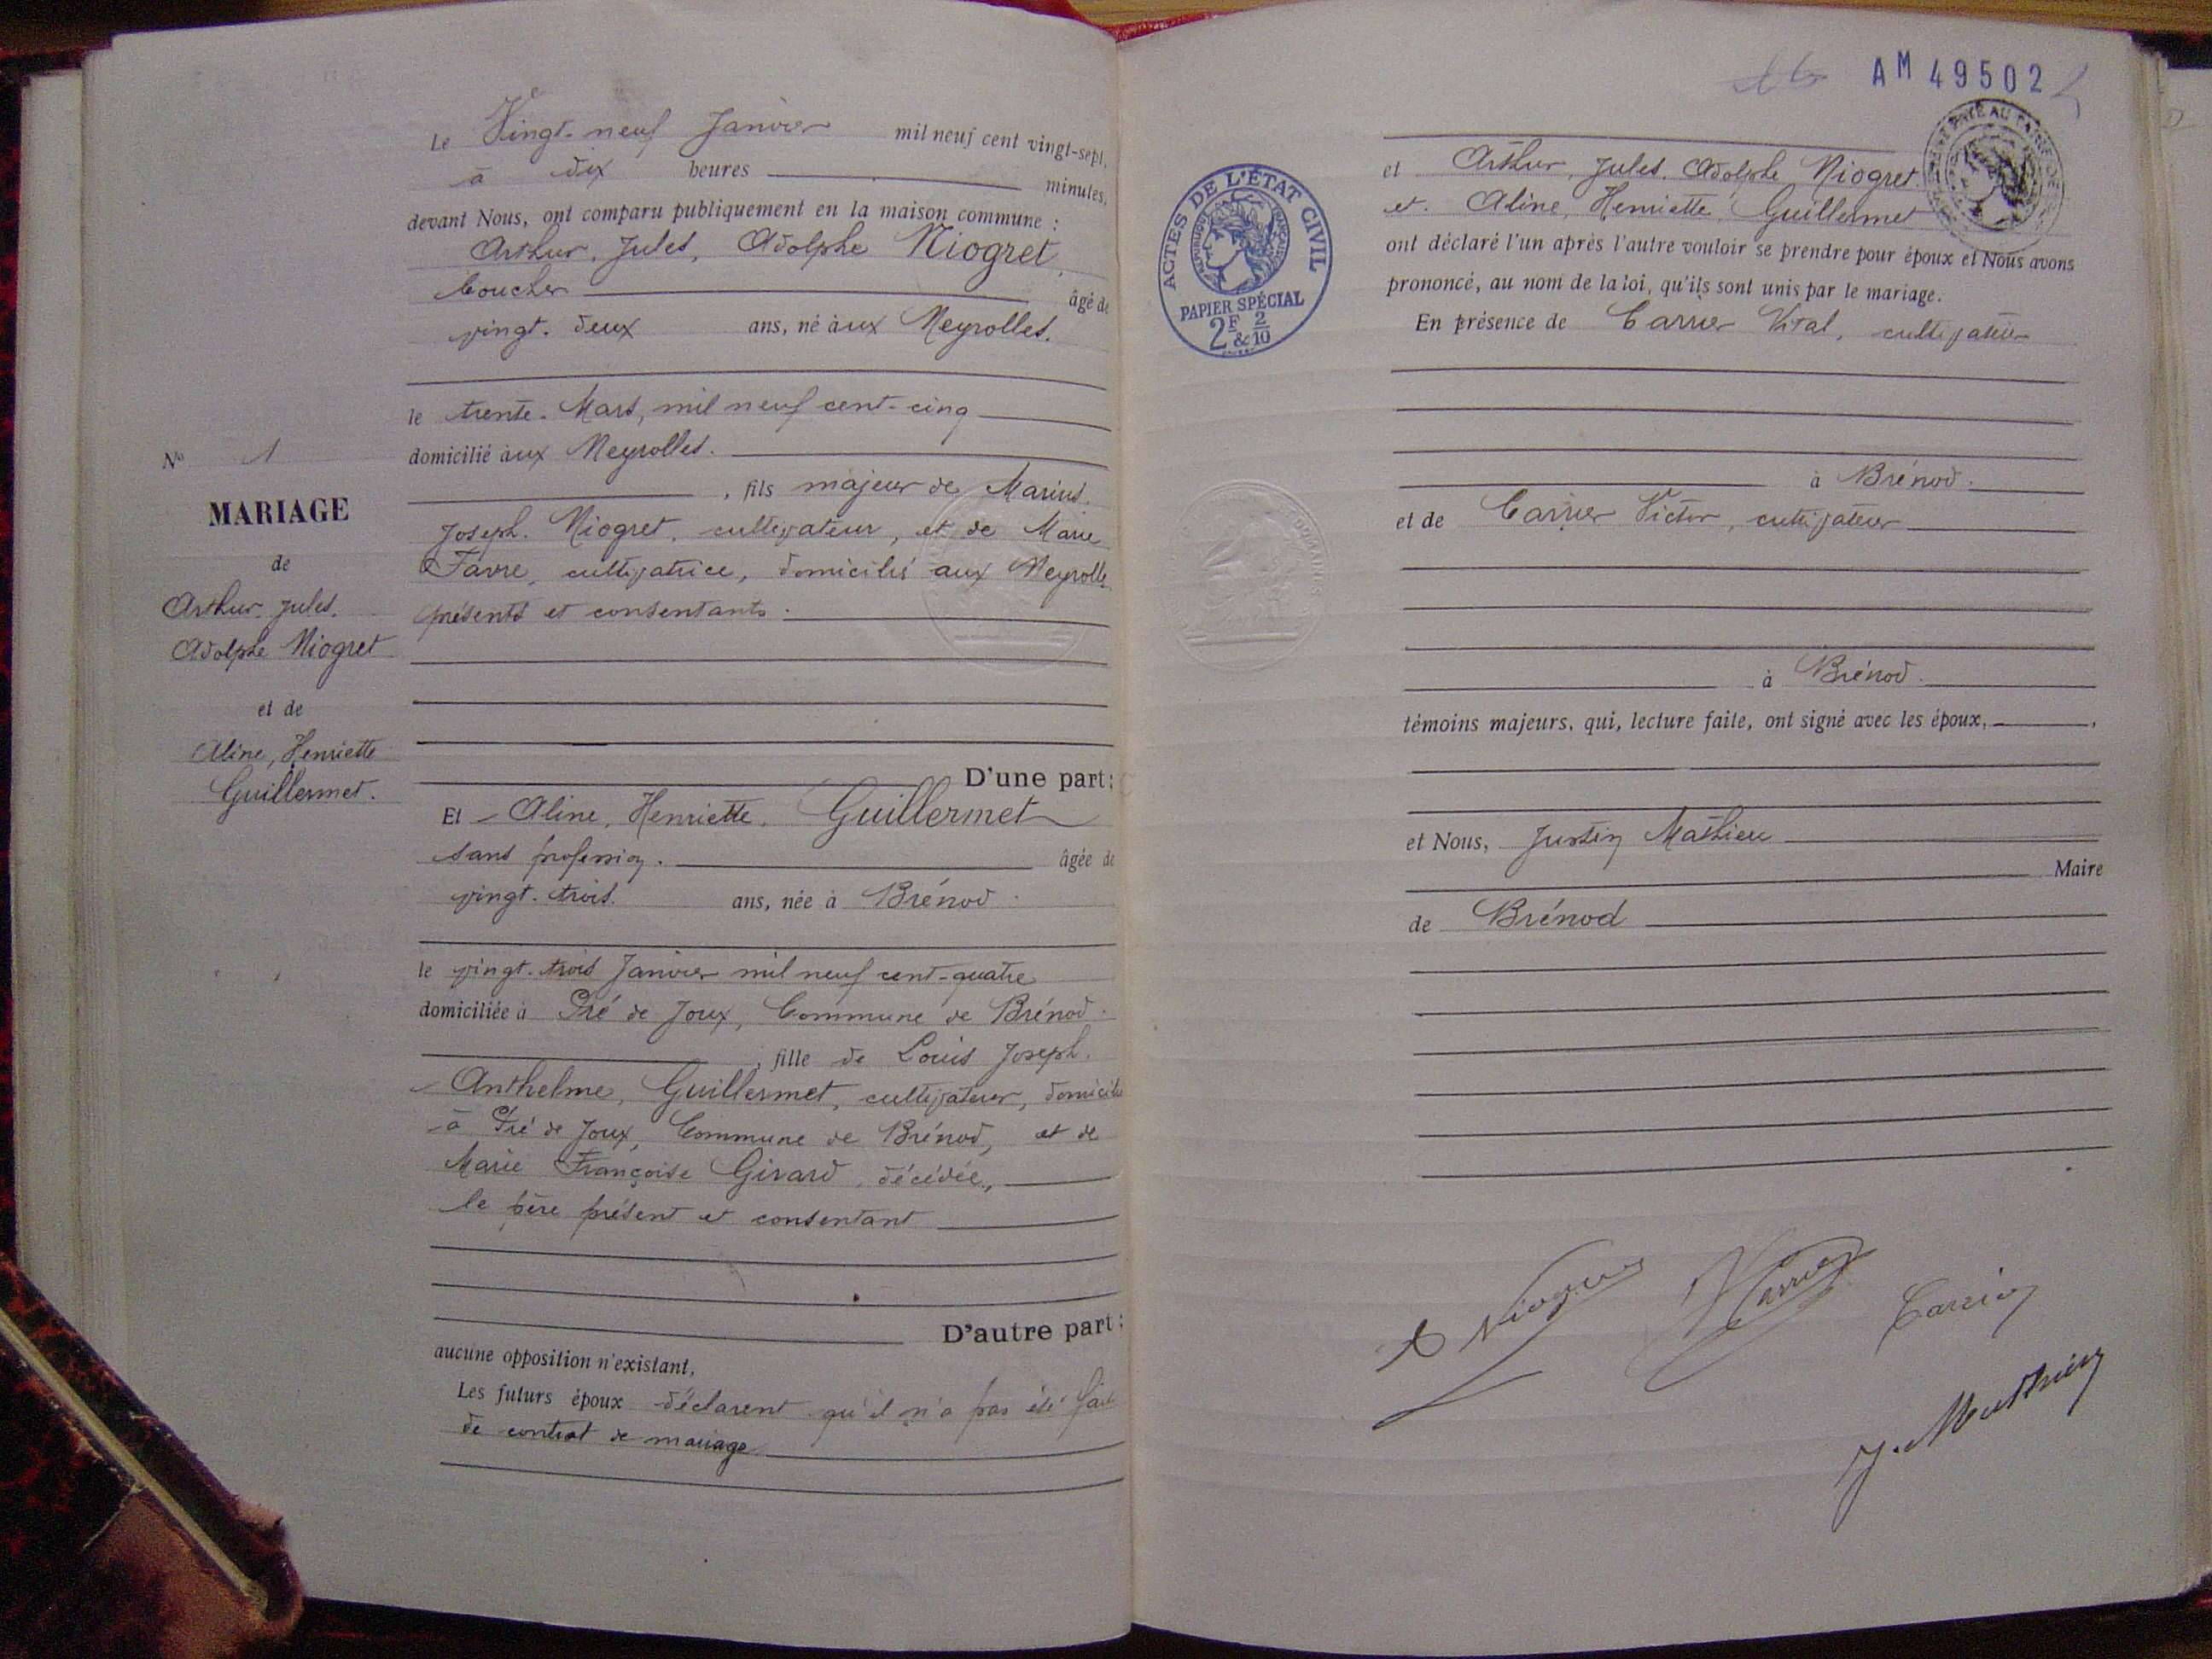 Le Vingt-neuf Janvier mil neuf cent vingt-sept,
à dix heures minutes,
devant Nous, ont comparu publiquement en la maison commune :
Arthur, Jules, Adolphe Niogret,
boucher âgé de
vingt-deux ans, né aux Neyrolles.
le trente Mars, mil neuf cent-cinq
domicilié aux Neyrolles.
, fils majeur de Marius
Joseph Niogret, cultivateur, et de Marie
Favre, cultivatrice, domiciliés aux Neyrolles
présents et consentants.
D'une part;
Et Aline, Henriette, Guillermet
sans profession. âgée de
vingt-trois ans, née à Brénod.
le vingt-trois Janvier mil neuf cent-quatre
domiciliée à Pré de Joux, Commune de Brénod.
, fille de Louis Joseph
Anthelme, Guillermet, cultivateur, domicilié
à Pré de Joux, Commune de Brénod, et de
Marie Françoise Girard, décédée,
le père présent et consentant
D'autre part:
aucune opposition n'existant,
Les futurs époux déclarent qu'il n'a pas été fait
de contrat de mariage
No 1
MARIAGE
de
Arthur, Jules,
Adolphe Niogret
et de
Aline, Henriette
Guillermet.
AM 49502
ACTES DE L'ÉTAT CIVIL
RÉPUBLIQUE FRANÇAISE
PAPIER SPÉCIAL
2F & 2/10
et Arthur, Jules, Adolphe Niogret
et Aline, Henriette Guillermet
ont déclaré l'un après l'autre vouloir se prendre pour époux et Nous avons
prononcé, au nom de la loi, qu'ils sont unis par le mariage.
En présence de Carrier Vital, cultivateur
à Brénod.
et de Carrier Victor, cultivateur
à Brénod.
témoins majeurs, qui, lecture faite, ont signé avec les époux,
et Nous, Justin Mathieu
Maire
de Brénod
A Niogret
Carrier
Carrier
J. Mathieu